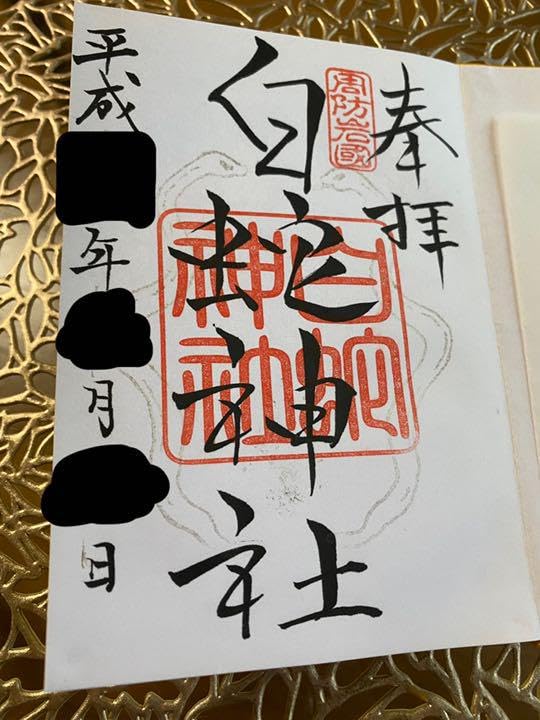 奉拝
周防岩國
白蛇神社
白蛇神社
平成 年 月 日